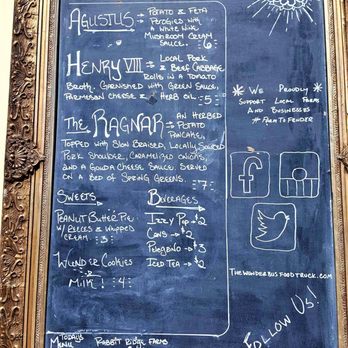 AGUSTUS → POTATO & FETA
PEROGIES WITH
A WHITE WINE
MUSHROOM CREAM
SAUCE. 6
HENRY VIII → LOCAL PORK
& BEEF CABBAGE
ROLLS IN A TOMATO
BROTH. GARNISHED WITH GREEN SAUCE,
PARMESAN CHEESE & HERB OIL 5
THE RAGNAR → AN HERBED
POTATO
PANCAKE,
TOPPED WITH SLOW BRAISED, LOCALLY SOURCED
PORK SHOULDER, CARAMELIZED ONIONS,
AND A GOUDA CHEESE SAUCE. SERVED
ON A BED OF SPRING GREENS. 7
SWEETS
PEANUT BUTTER PIE
W/ REECES & WHIPPED
CREAM 3
WUNDER COOKIES
2
MILK! 4
BEVERAGES
IZZY POP → $2
CANS → $2
PELEGRINO → $3
ICED TEA → $2
* WE PROUDLY *
SUPPORT LOCAL FARMS
AND BUSINESSES
# FARM TO FENDER
f
THEWONDERBUSFOODTRUCK.COM
FOLLOW US!
TODAY'S
MENU
RABBIT RIDGE FARMS